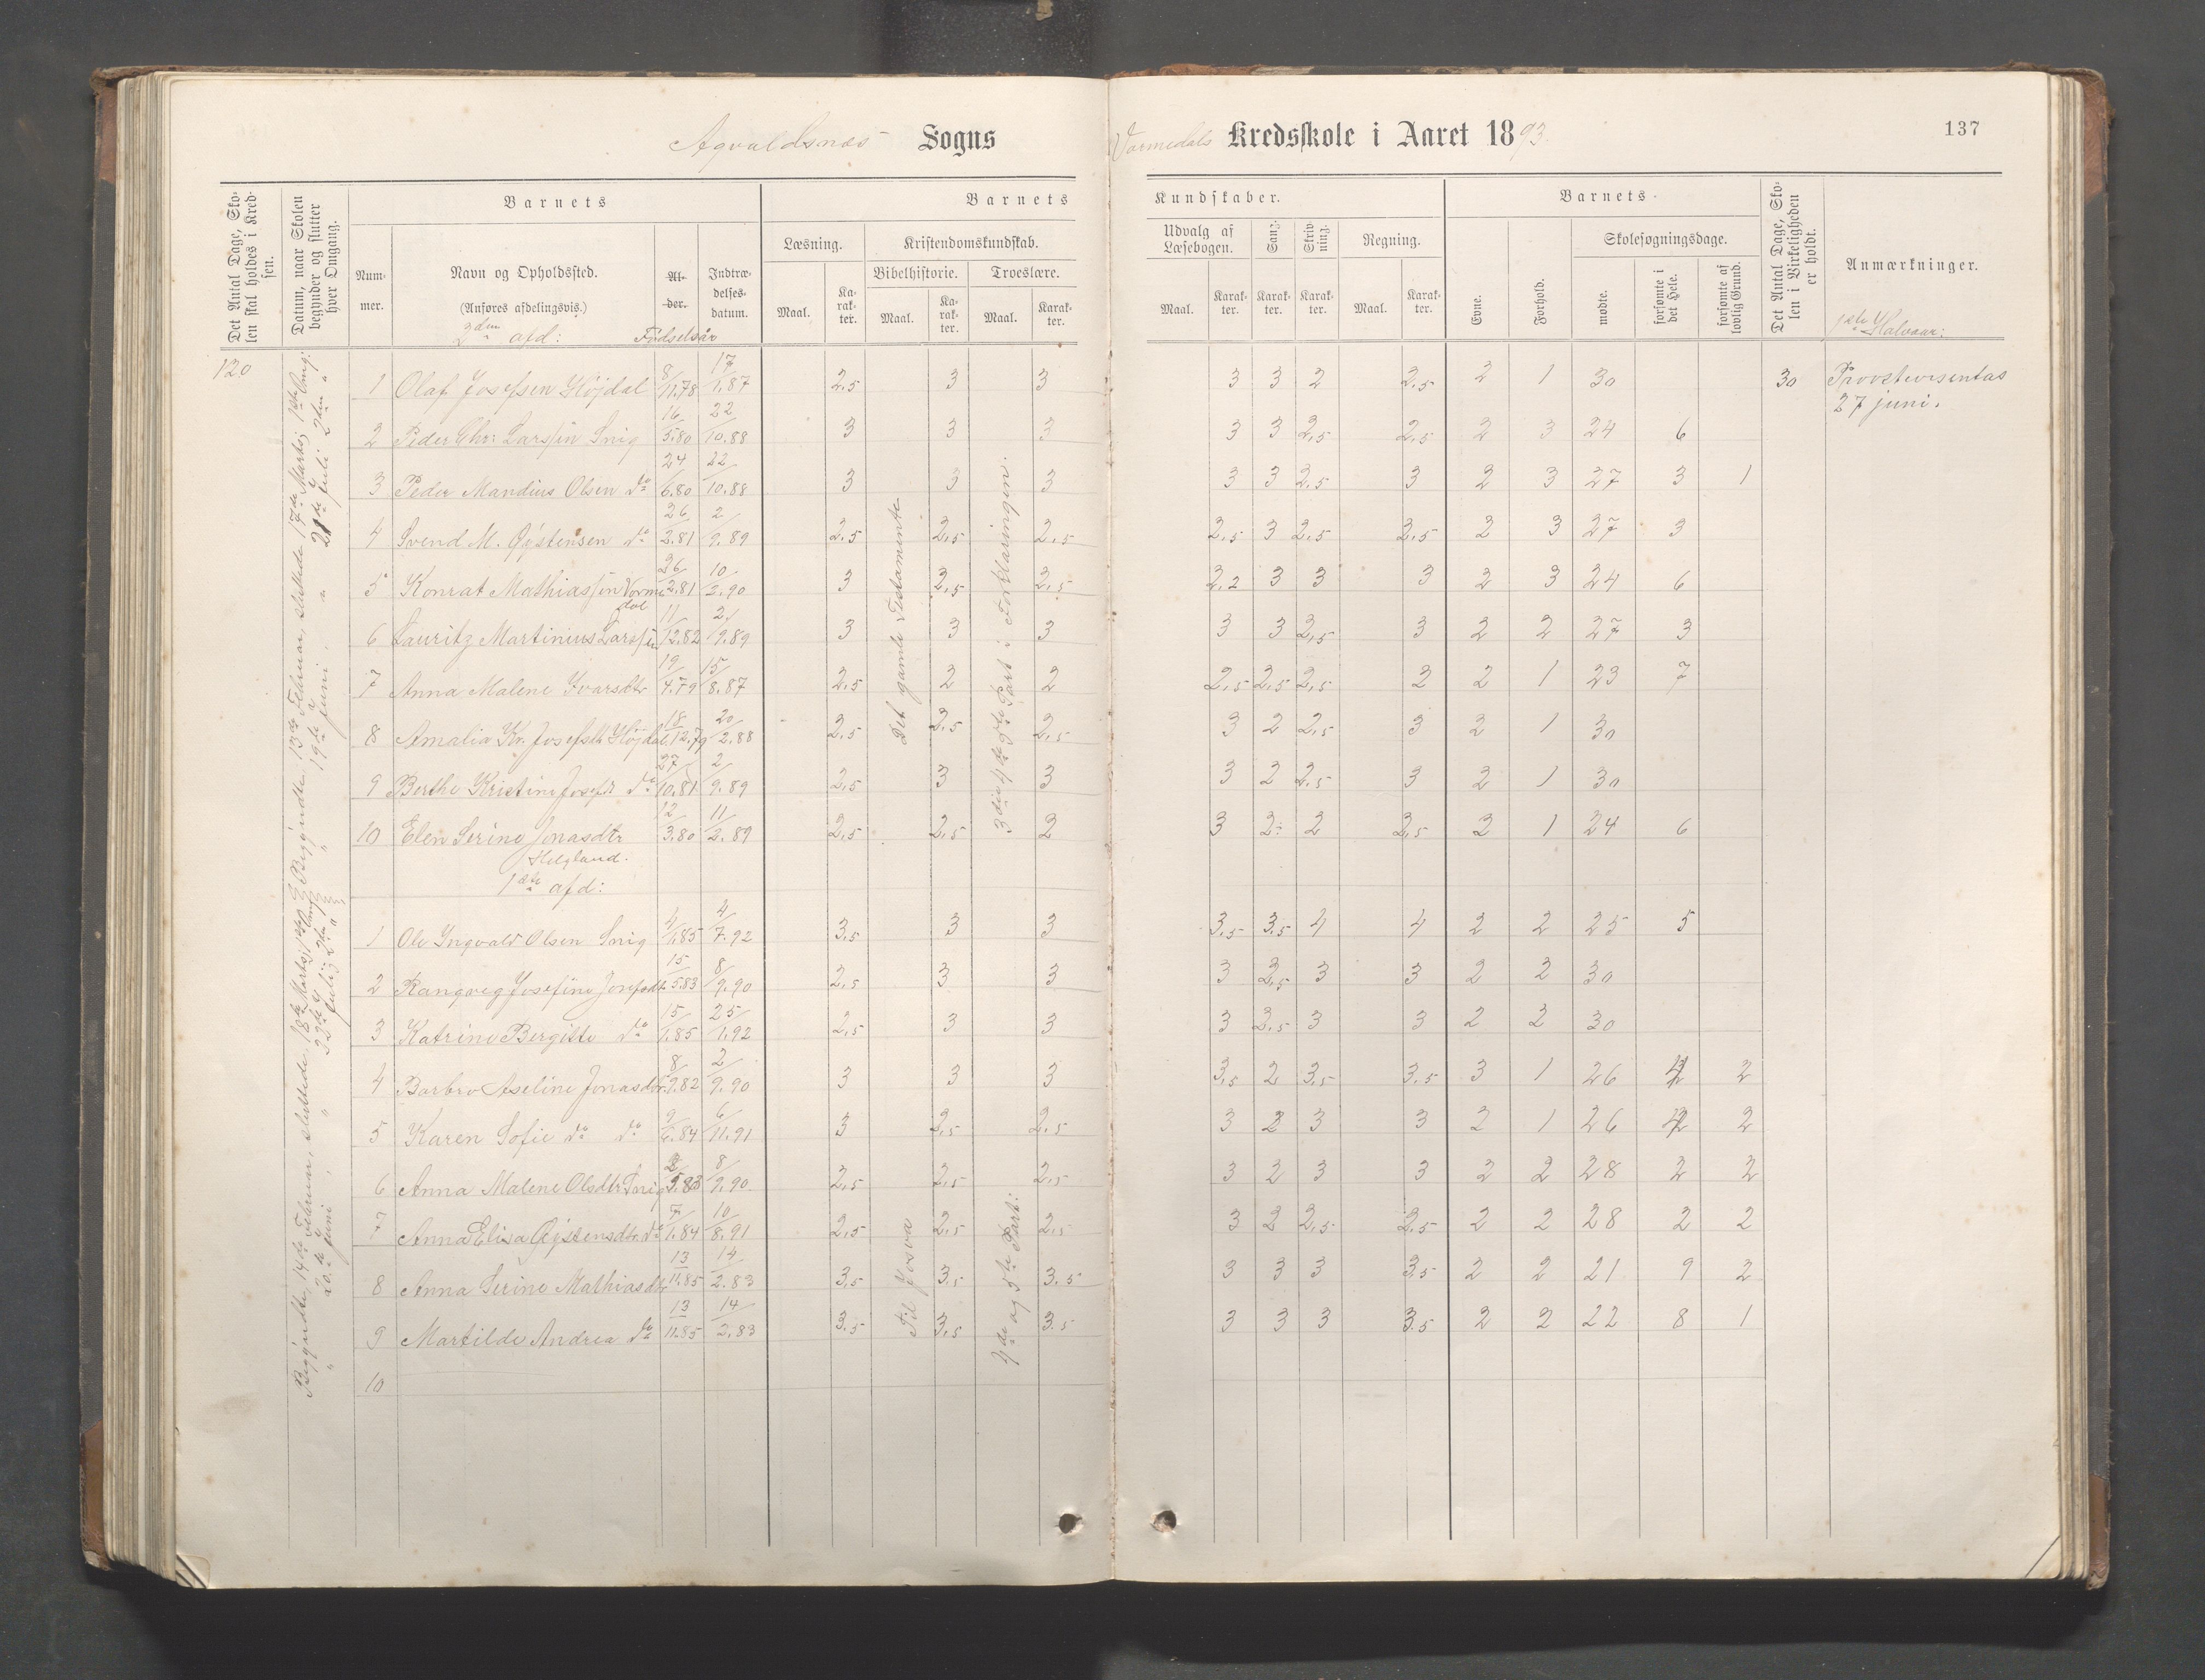 Agvaldsnæs Sogns
Vormedals Kredsskole i Aaret 1893.
137
Det Antal Dage, Sko-
len skal holdes i Kred-
sen.
Datum, naar Skolen
begynder og slutter
hver Omgang.
Barnets
Num-
mer.
Navn og Opholdssted.
(Anføres afdelingsvis.)
2den afd:
Al-
der.
Fødselsår
Indtræ-
delses-
datum.
Barnets
Læsning.
Maal.
Ka-
rak-
ter.
Kristendomskundskab.
Bibelhistorie.
Maal.
Ka-
rak-
ter.
Troeslære.
Maal.
Karak-
ter.
Kundskaber.
Udvalg af
Læsebogen.
Maal.
Karak-
ter.
Sang.
Karak-
ter.
Skriv-
ning.
Karak-
ter.
Regning.
Maal.
Karak-
ter.
Barnets
Evne.
Forhold.
Skolesøgningsdage.
mødte.
forsømte i
det Hele.
forsømte af
lovlig Grund.
Det Antal Dage, Sko-
len i Virkeligheden
er holdt.
Anmærkninger.
1ste Halvaar:
120
Begyndte 13de Februar, sluttede 17de Marts; 1ste Omg:
" 19de juni, " 21de juli 2den "
Begyndte 14de Februar, sluttede 18de Marts; 1ste Omg
" 20de juni, " 22de juli; 2den "
Det gamle Testamente
3die, 4de og 5te Part i Forklaringen.
Til Josva
4de og 5te Part:
1 Olaf Josefsen Højdal 8/11.78 17/1.87 2,5 3 3 3 3 2 2,5 2 1 30 30 Provstevisentas
27 juni.
2 Peder Chr: Larssen Snig 16/5.80 22/10.88 3 3 3 3 3 2,5 2,5 2 3 24 6
3 Peder Mandius Olsen do 24/6.80 22/10.88 3 3 3 3 3 2,5 3 2 3 27 3 1
4 Svend M. Øystensen do 26/2.81 2/9.89 2,5 2,5 2,5 2,5 3 2,5 2,5 2 3 27 3
5 Konrat Mathiassen Vorme-
dal 26/2.81 10/2.90 3 2,5 2,5 2,2 3 3 3 2 3 24 6
6 Lauritz Martinius Larssen 11/12.82 2/9.89 3 3 3 3 3 2,5 3 2 2 27 3
7 Anna Malene Ivarsdtr 19/4.79 15/8.87 2,5 2 2 2,5 2,5 2,5 2 2 1 23 7
8 Amalia Kr. Josefsdt Højdal 18/12.79 20/2.88 2,5 2,5 2,5 3 2 2,5 3 2 1 30
9 Berthe Kristine Josefd. do 27/10.81 2/9.89 2,5 3 3 3 2 2,5 3 2 1 30
10 Elen Serine Jonasdtr
Helgland. 12/3.80 11/2.89 2,5 2,5 2 3 2 2 2,5 2 1 24 6
1ste afd:
1 Ole Yngvald Olsen Snig 4/1.85 4/7.92 3,5 3 3 3,5 3,5 4 4 2 2 25 5
2 Rangveg Josefine Josefsdtr 15/5.83 8/9.90 2,5 3 3 3 2,5 3 3 2 2 30
3 Katrine Bergitte do 15/1.85 25/1.92 2,5 3 3 3 2,5 3 3 2 2 30
4 Barbro Aseline Jonasdtr 8/9.82 2/9.90 3 3 3 3,5 2 3,5 3.5 3 1 26 2
5 Karen Sofie do do 9/6.84 6/11.91 3 2,5 2.5 3 2 3 3 2 1 26 2
6 Anna Malene Olsdtr Snig 8/9.90 2,5 2,5 2,5 3 2 3 3 2 2 28 2 2
7 Anna Elisa Øystensdtr do 7/1.84 10/8.91 2,5 2,5 2,5 3 2 2,5 2.5 2 2 28 2 2
8 Anna Serine Mathiasdtr 13/11.85 14/2.83 3,5 3,5 3.5 3 3 3 3.5 2 2 21 9 2
9 Martilde Andrea do 13/11.85 14/2.83 3.5 3,5 3.5 3 3 3 3.5 2 2 22 8 1
10